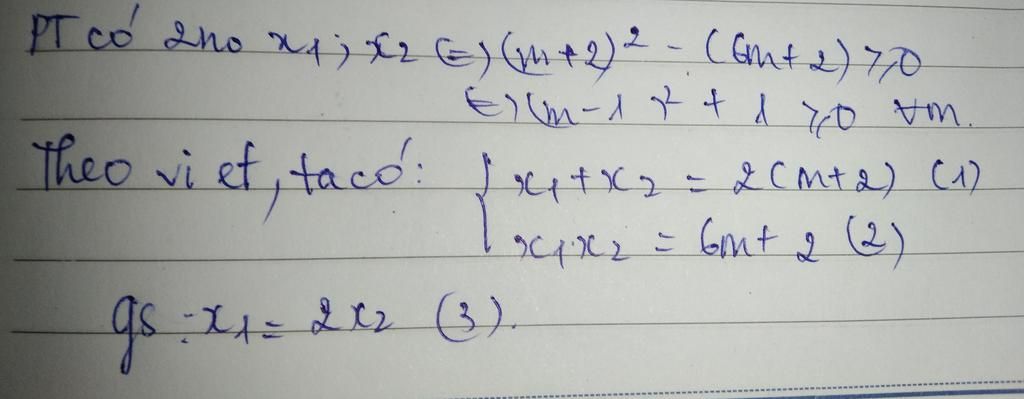 PT có 2no x₁; x₂ ⇔ (m+2)² - (6m+2) ≥ 0
⇔ (m-1)² + 1 ≥ 0 ∀m.
Theo vi et, ta có: { x₁+x₂ = 2(m+2) (1)
x₁.x₂ = 6m+2 (2)
gs : x₁ = 2x₂ (3).